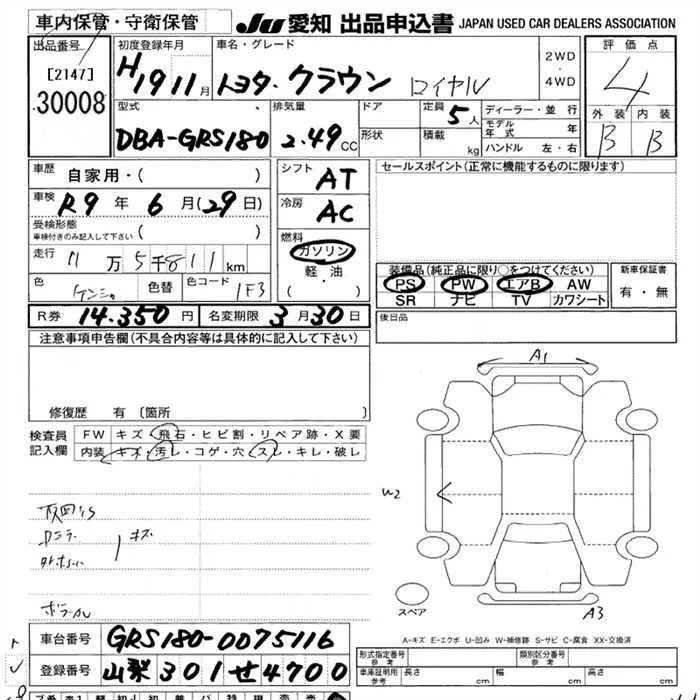 車内保管・守衛保管
JU 愛知 出品申込書 JAPAN USED CAR DEALERS ASSOCIATION
出品番号
[2147]
30008
初度登録年月
H19 11月
車名・グレード
トヨタ・クラウン ロイヤル
2WD
・
4WD
評価点
4
外装 内装
B B
型式
DBA-GRS180
排気量
2.49 CC
ドア
形状
定員 5 人
積載 kg
ディーラー・並行
モデル年式 年
ハンドル 左・右
車歴 自家用・( )
車検 R9 年 6 月 (29 日)
受検形態
車検付きのみ記入して下さい ( )
走行 11 万 5 千 811 km
色 色替 色コード 1F3
シフト AT
冷房 AC
燃料
ガソリン
軽・油
・( )
セールスポイント(正常に機能するものに限ります)
装備品(純正品に限り〇をつけてください)
PS PW エアB AW
SR ナビ TV カワシート
新車保証書
有・無
R券 14.350 円 名変期限 3月30日
後日品
注意事項申告欄(不具合内容等は具体的に記入して下さい)
修復歴 有 〔箇所
検査員
記入欄
FW キズ・飛石・ヒビ割・リペア跡・X要
内装 キズ・汚レ・コゲ・穴・スレ・キレ・破レ
キズ
A1
W2
A3
スペア
A-キズ E-エクボ U-凹み W-補修跡 S-サビ C-腐食 XX-交換済
車台番号 GRS180-0075116
登録番号 山梨 301 せ 4700
形式指定番号
参考
類別区分番号
参考
車庫証明用
参考
長さ cm 幅 cm 高さ cm